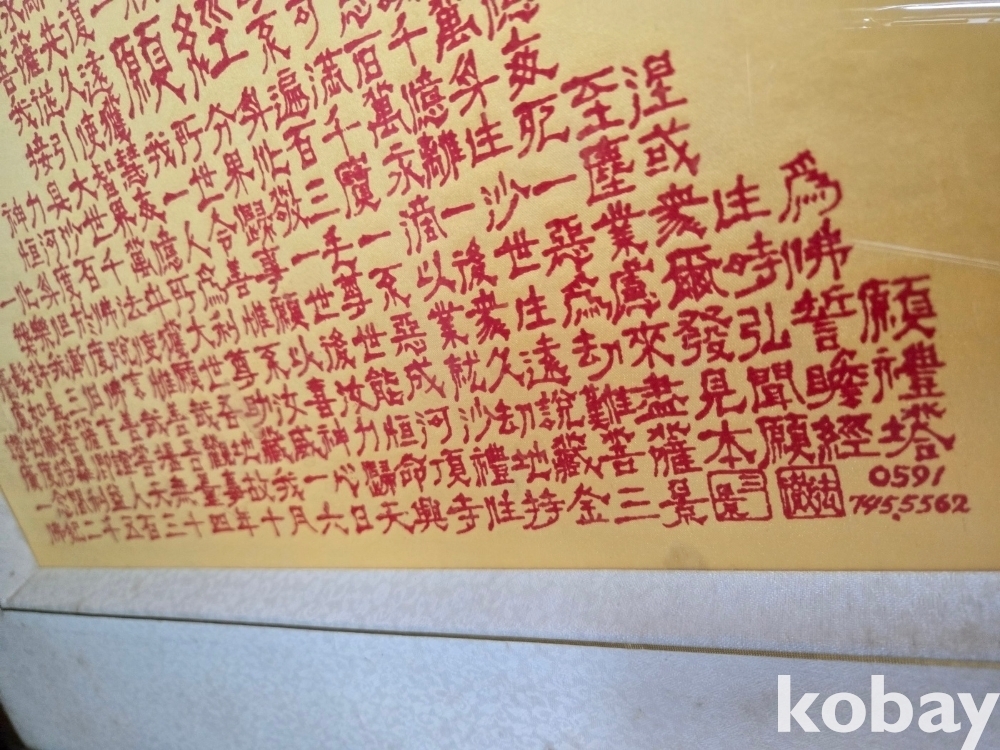 菩薩
我從久遠
願經
接引使獲不可思
神力具大智慧我所分身遍滿百千萬億
恒河沙世界每一世界化百千萬億身每
一化身度百千萬億人令歸敬三寶永離生死至涅
槃樂但於佛法中所爲善事一毛一渧一沙一塵或
髮許我漸度脫使獲大利惟願世尊不以後世惡業衆生爲
慮如是三白佛言惟願世尊不以後世惡業衆生爲慮爾時佛
地藏菩薩言善哉善哉吾助汝喜汝能成就久遠劫來發弘誓願
廣度將畢即證菩提吾觀地藏威神力恒河沙劫說難盡見聞瞻禮
一念間利益人天無量事故我一心歸命頂禮地藏菩薩本願經塔
佛紀二千五百三十四年十月六日天興寺住持金三景
0591
745.5562
kobay